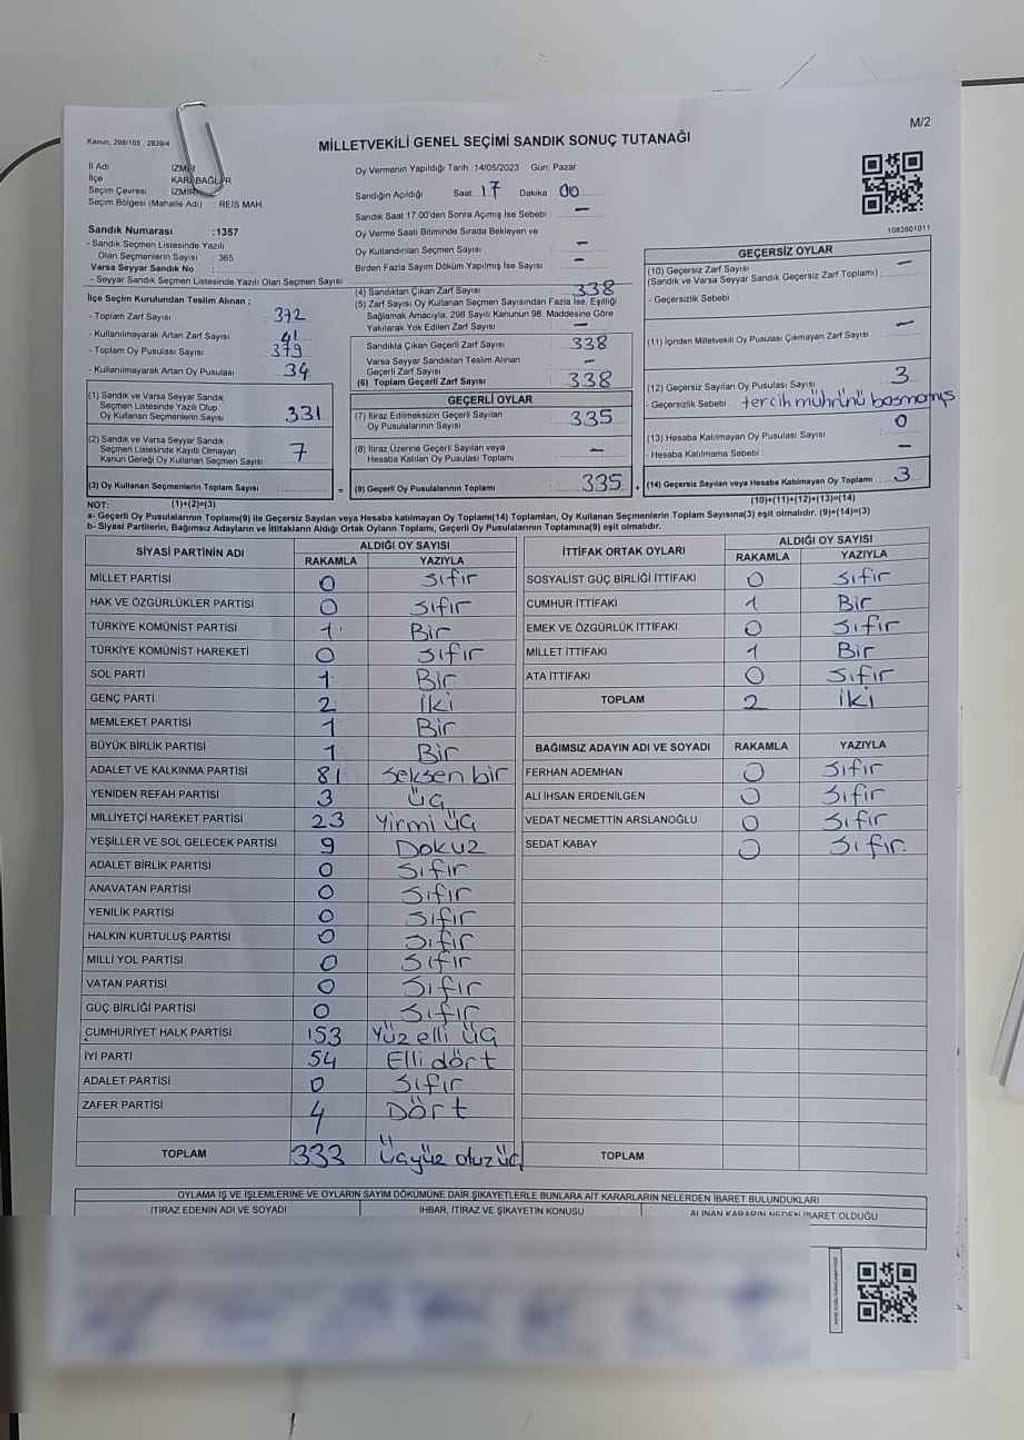 M/2
Kanun, 298/105 2839/4
MİLLETVEKİLİ GENEL SEÇİMİ SANDIK SONUÇ TUTANAĞI
İl Adı İZMİR
İlçe KARABAĞLAR
Seçim Çevresi İZMİR
Seçim Bölgesi (Mahalle Adı) : REİS MAH.
Sandık Numarası :1357
- Sandık Seçmen Listesinde Yazılı
Olan Seçmenlerin Sayısı : 365
Varsa Seyyar Sandık No :
- Seyyar Sandık Seçmen Listesinde Yazılı Olan Seçmen Sayısı
Oy Vermenin Yapıldığı Tarih :14/05/2023 Gün: Pazar
Sandığın Açıldığı Saat 17 Dakika 00
Sandık Saat 17.00'den Sonra Açılmış İse Sebebi : —
Oy Verme Saati Bitiminde Sırada Bekleyen ve
Oy Kullandırılan Seçmen Sayısı : —
Birden Fazla Sayım Döküm Yapılmış İse Sayısı : —
1083601011
İlçe Seçim Kurulundan Teslim Alınan ;
- Toplam Zarf Sayısı 372
- Kullanılmayarak Artan Zarf Sayısı 41
- Toplam Oy Pusulası Sayısı 379
- Kullanılmayarak Artan Oy Pusulası 34
(1) Sandık ve Varsa Seyyar Sandık
Seçmen Listesinde Yazılı Olup
Oy Kullanan Seçmenlerin Sayısı 331
(2) Sandık ve Varsa Seyyar Sandık
Seçmen Listesinde Kayıtlı Olmayan
Kanun Gereği Oy Kullanan Seçmen Sayısı 7
(3) Oy Kullanan Seçmenlerin Toplam Sayısı
(4) Sandıktan Çıkan Zarf Sayısı 338
(5) Zarf Sayısı Oy Kullanan Seçmen Sayısından Fazla İse, Eşitliği
Sağlamak Amacıyla, 298 Sayılı Kanunun 98. Maddesine Göre
Yakılarak Yok Edilen Zarf Sayısı : —
Sandıkta Çıkan Geçerli Zarf Sayısı 338
Varsa Seyyar Sandıktan Teslim Alınan
Geçerli Zarf Sayısı —
(6) Toplam Geçerli Zarf Sayısı 338
GEÇERLİ OYLAR
(7) İtiraz Edilmeksizin Geçerli Sayılan
Oy Pusulalarının Sayısı 335
(8) İtiraz Üzerine Geçerli Sayılan veya
Hesaba Katılan Oy Pusulası Toplamı —
= (9) Geçerli Oy Pusulalarının Toplamı 335
GEÇERSİZ OYLAR
(10) Geçersiz Zarf Sayısı —
(Sandık ve Varsa Seyyar Sandık Geçersiz Zarf Toplamı) :
- Geçersizlik Sebebi :
(11) İçinden Milletvekili Oy Pusulası Çıkmayan Zarf Sayısı —
(12) Geçersiz Sayılan Oy Pusulası Sayısı 3
- Geçersizlik Sebebi : tercih mührünü basmamış
(13) Hesaba Katılmayan Oy Pusulası Sayısı 0
- Hesaba Katılmama Sebebi : —
+ (14) Geçersiz Sayılan veya Hesaba Katılmayan Oy Toplamı 3
NOT: (1)+(2)=(3) (10)+(11)+(12)+(13)=(14)
a- Geçerli Oy Pusulalarının Toplamı(9) ile Geçersiz Sayılan veya Hesaba katılmayan Oy Toplamı(14) Toplamları, Oy Kullanan Seçmenlerin Toplam Sayısına(3) eşit olmalıdır. (9)+(14)=(3)
b- Siyasi Partilerin, Bağımsız Adayların ve İttifakların Aldığı Ortak Oyların Toplamı, Geçerli Oy Pusulalarının Toplamına(9) eşit olmalıdır.
SİYASİ PARTİNİN ADI ALDIĞI OY SAYISI
RAKAMLA YAZIYLA
MİLLET PARTİSİ 0 Sıfır
HAK VE ÖZGÜRLÜKLER PARTİSİ 0 Sıfır
TÜRKİYE KOMÜNİST PARTİSİ 1 Bir
TÜRKİYE KOMÜNİST HAREKETİ 0 Sıfır
SOL PARTİ 1 Bir
GENÇ PARTİ 2 İki
MEMLEKET PARTİSİ 1 Bir
BÜYÜK BİRLİK PARTİSİ 1 Bir
ADALET VE KALKINMA PARTİSİ 81 Seksen bir
YENİDEN REFAH PARTİSİ 3 Üç
MİLLİYETÇİ HAREKET PARTİSİ 23 Yirmi üç
YEŞİLLER VE SOL GELECEK PARTİSİ 9 Dokuz
ADALET BİRLİK PARTİSİ 0 Sıfır
ANAVATAN PARTİSİ 0 Sıfır
YENİLİK PARTİSİ 0 Sıfır
HALKIN KURTULUŞ PARTİSİ 0 Sıfır
MİLLİ YOL PARTİSİ 0 Sıfır
VATAN PARTİSİ 0 Sıfır
GÜÇ BİRLİĞİ PARTİSİ 0 Sıfır
CUMHURİYET HALK PARTİSİ 153 Yüz elli üç
İYİ PARTİ 54 Elli dört
ADALET PARTİSİ 0 Sıfır
ZAFER PARTİSİ 4 Dört
TOPLAM 333 Üçyüz otuz üç
İTTİFAK ORTAK OYLARI ALDIĞI OY SAYISI
RAKAMLA YAZIYLA
SOSYALİST GÜÇ BİRLİĞİ İTTİFAKI 0 Sıfır
CUMHUR İTTİFAKI 1 Bir
EMEK VE ÖZGÜRLÜK İTTİFAKI 0 Sıfır
MİLLET İTTİFAKI 1 Bir
ATA İTTİFAKI 0 Sıfır
TOPLAM 2 İki
BAĞIMSIZ ADAYIN ADI VE SOYADI RAKAMLA YAZIYLA
FERHAN ADEMHAN 0 Sıfır
ALİ İHSAN ERDENİLGEN 0 Sıfır
VEDAT NECMETTİN ARSLANOĞLU 0 Sıfır
SEDAT KABAY 0 Sıfır.
TOPLAM
OYLAMA İŞ VE İŞLEMLERİNE VE OYLARIN SAYIM DÖKÜMÜNE DAİR ŞİKAYETLERLE BUNLARA AİT KARARLARIN NELERDEN İBARET BULUNDUKLARI
İTİRAZ EDENİN ADI VE SOYADI İHBAR, İTİRAZ VE ŞİKAYETİN KONUSU ALINAN KARARIN NEDEN İBARET OLDUĞU